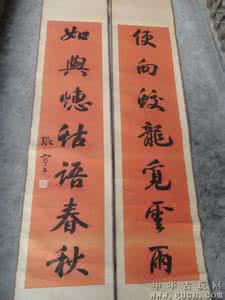 便向蛟龍覓雲雨
如與蟪蛄語春秋
中华古玩网
www.gucn.com